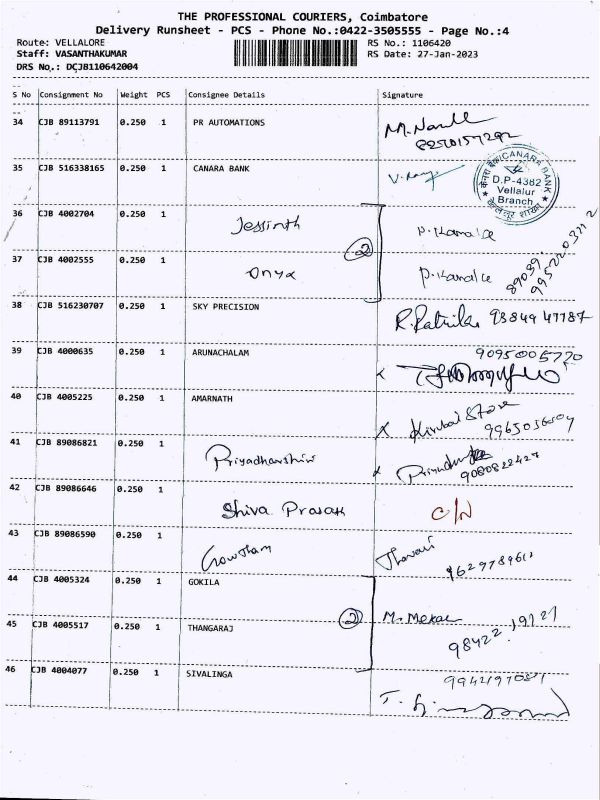 THE PROFESSIONAL COURIERS, Coimbatore
Delivery Runsheet - PCS - Phone No.:0422-3505555 - Page No.:4
Route: VELLALORE RS No.: 1106420
Staff: VASANTHAKUMAR RS Date: 27-Jan-2023
DRS No.: DCJB110642004
S No Consignment No Weight PCS Consignee Details Signature
34 CJB 89113791 0.250 1 PR AUTOMATIONS
35 CJB 516338165 0.250 1 CANARA BANK
CANARA BANK
D.P-4382
Vellalur
Branch
36 CJB 4002704 0.250 1 Jessinth P. Kamala
37 CJB 4002555 0.250 1 Onyx 2 P. Kamala
38 CJB 516230707 0.250 1 SKY PRECISION
39 CJB 4000635 0.250 1 ARUNACHALAM
40 CJB 4005225 0.250 1 AMARNATH Store
41 CJB 89086821 0.250 1 Priyadharshini 9080822427
42 CJB 89086646 0.250 1 Shiva Prasak C/N
43 CJB 89086590 0.250 1 Gowtham
44 CJB 4005324 0.250 1 GOKILA
45 CJB 4005517 0.250 1 THANGARAJ 2
46 CJB 4004077 0.250 1 SIVALINGA